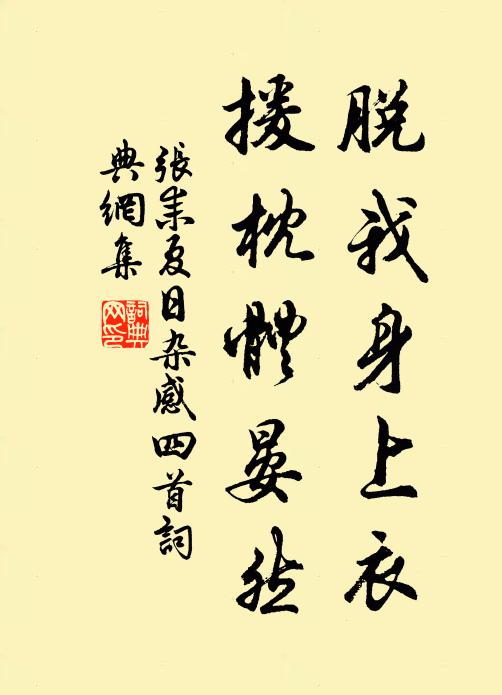 脱我身上衣
援枕體晏然
張耒夏日杂感四首詞
典網集
詞典
网印